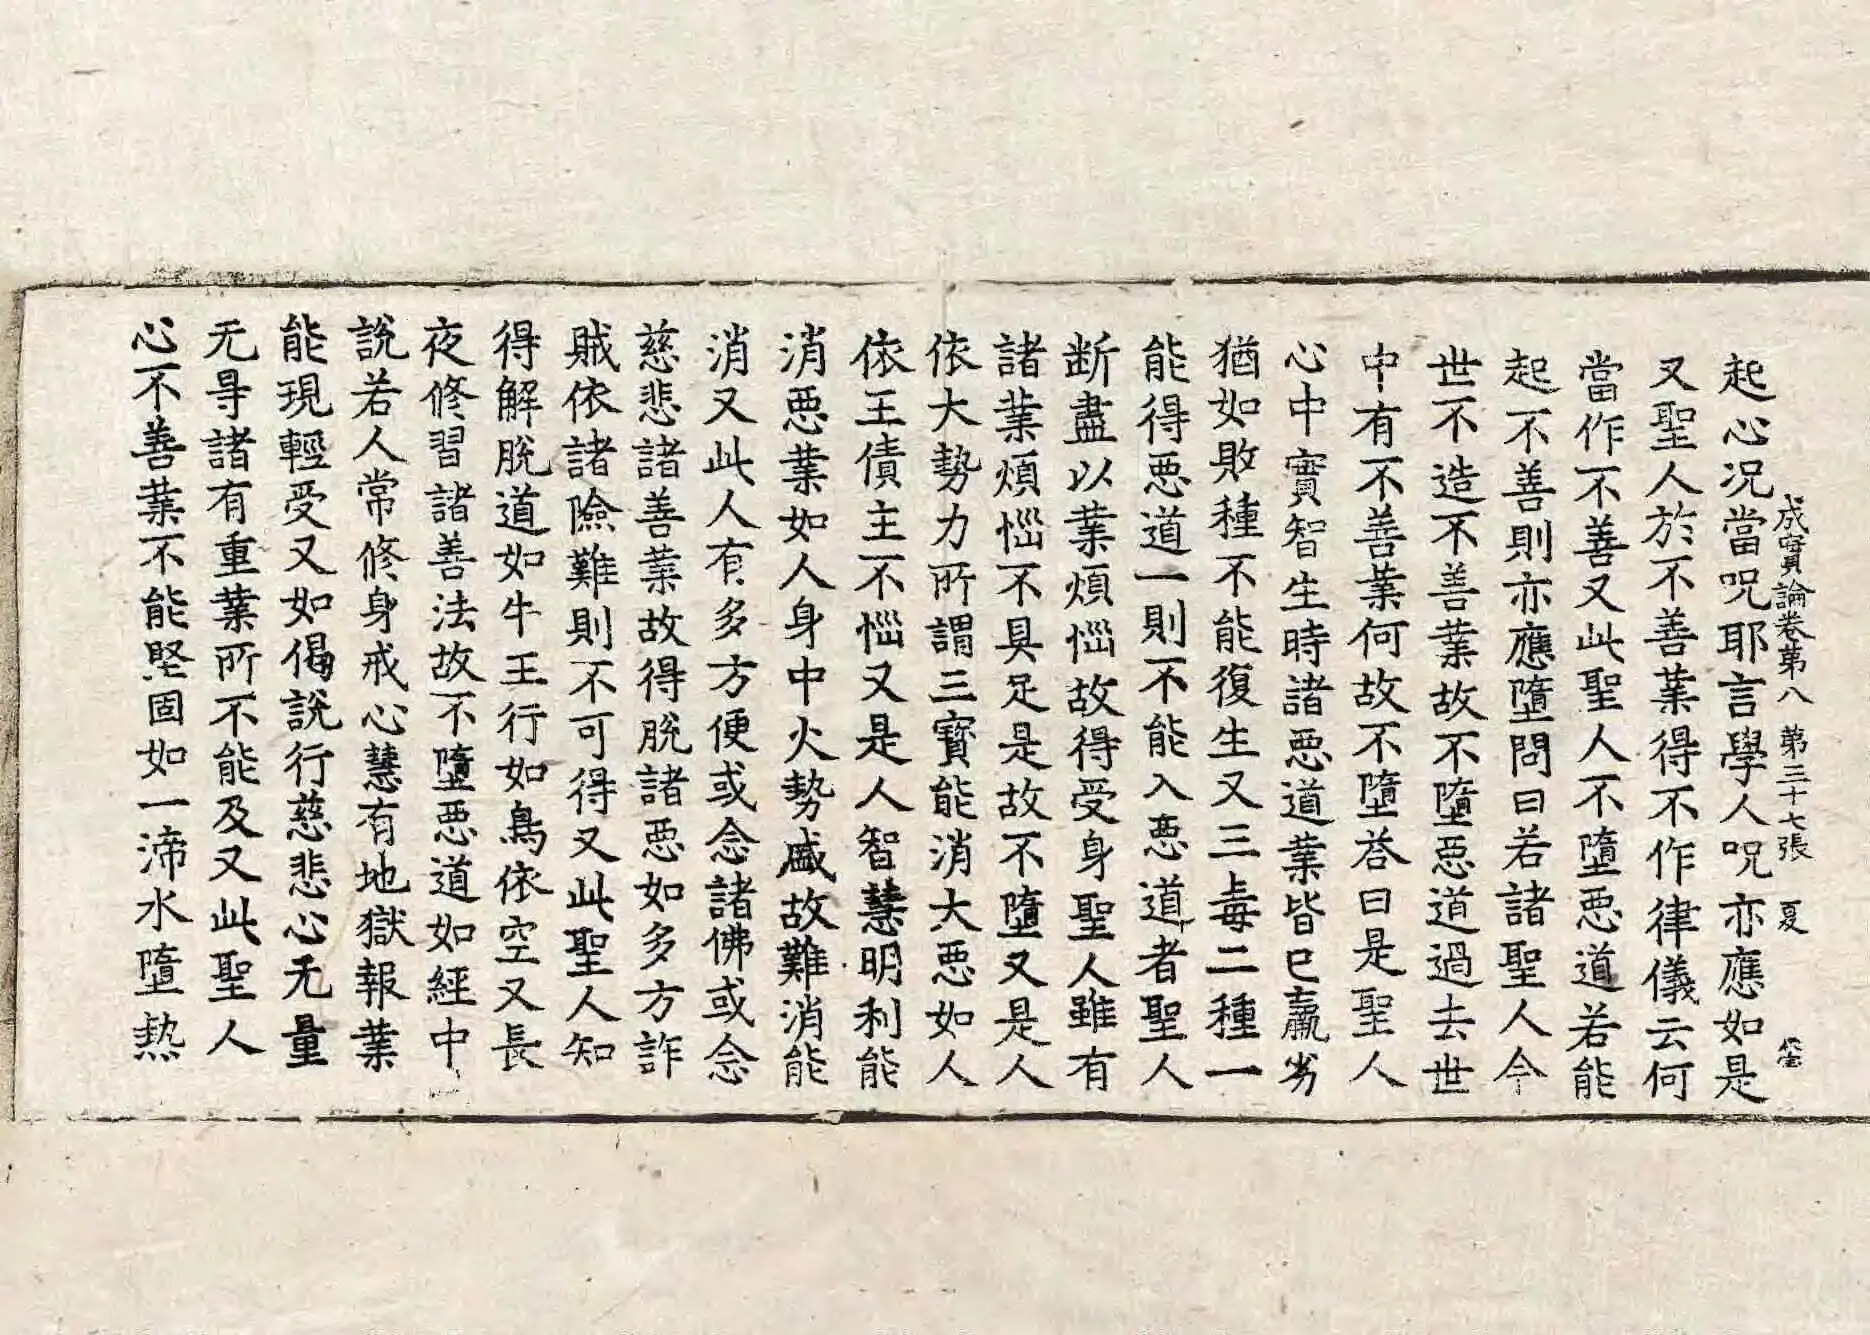 成實論卷第八 第三十七張 夏
起心况當呪耶言學人呪亦應如是
又聖人於不善業得不作律儀云何
當作不善又此聖人不墮惡道若能
起不善則亦應墮問曰若諸聖人今
世不造不善業故不墮惡道過去世
中有不善業何故不墮荅曰是聖人
心中實智生時諸惡道業皆已羸劣
猶如敗種不能復生又三毒二種一
能得惡道一則不能入惡道者聖人
断盡以業煩惱故得受身聖人雖有
諸業煩惱不具足是故不墮又是人
依大勢力所謂三寶能消大惡如人
依王債主不惱又是人智慧明利能
消惡業如人身中火勢盛故難消能
消又此人有多方便或念諸佛或念
慈悲諸善業故得脫諸惡如多方詐
賊依諸險難則不可得又此聖人知
得解脫道如牛王行如鳥依空又長
夜修習諸善法故不墮惡道如經中
說若人常修身戒心慧有地獄報業
能現輕受又如偈說行慈悲心无量
无㝵諸有重業所不能及又此聖人
心不善業不能堅固如一渧水墮熱